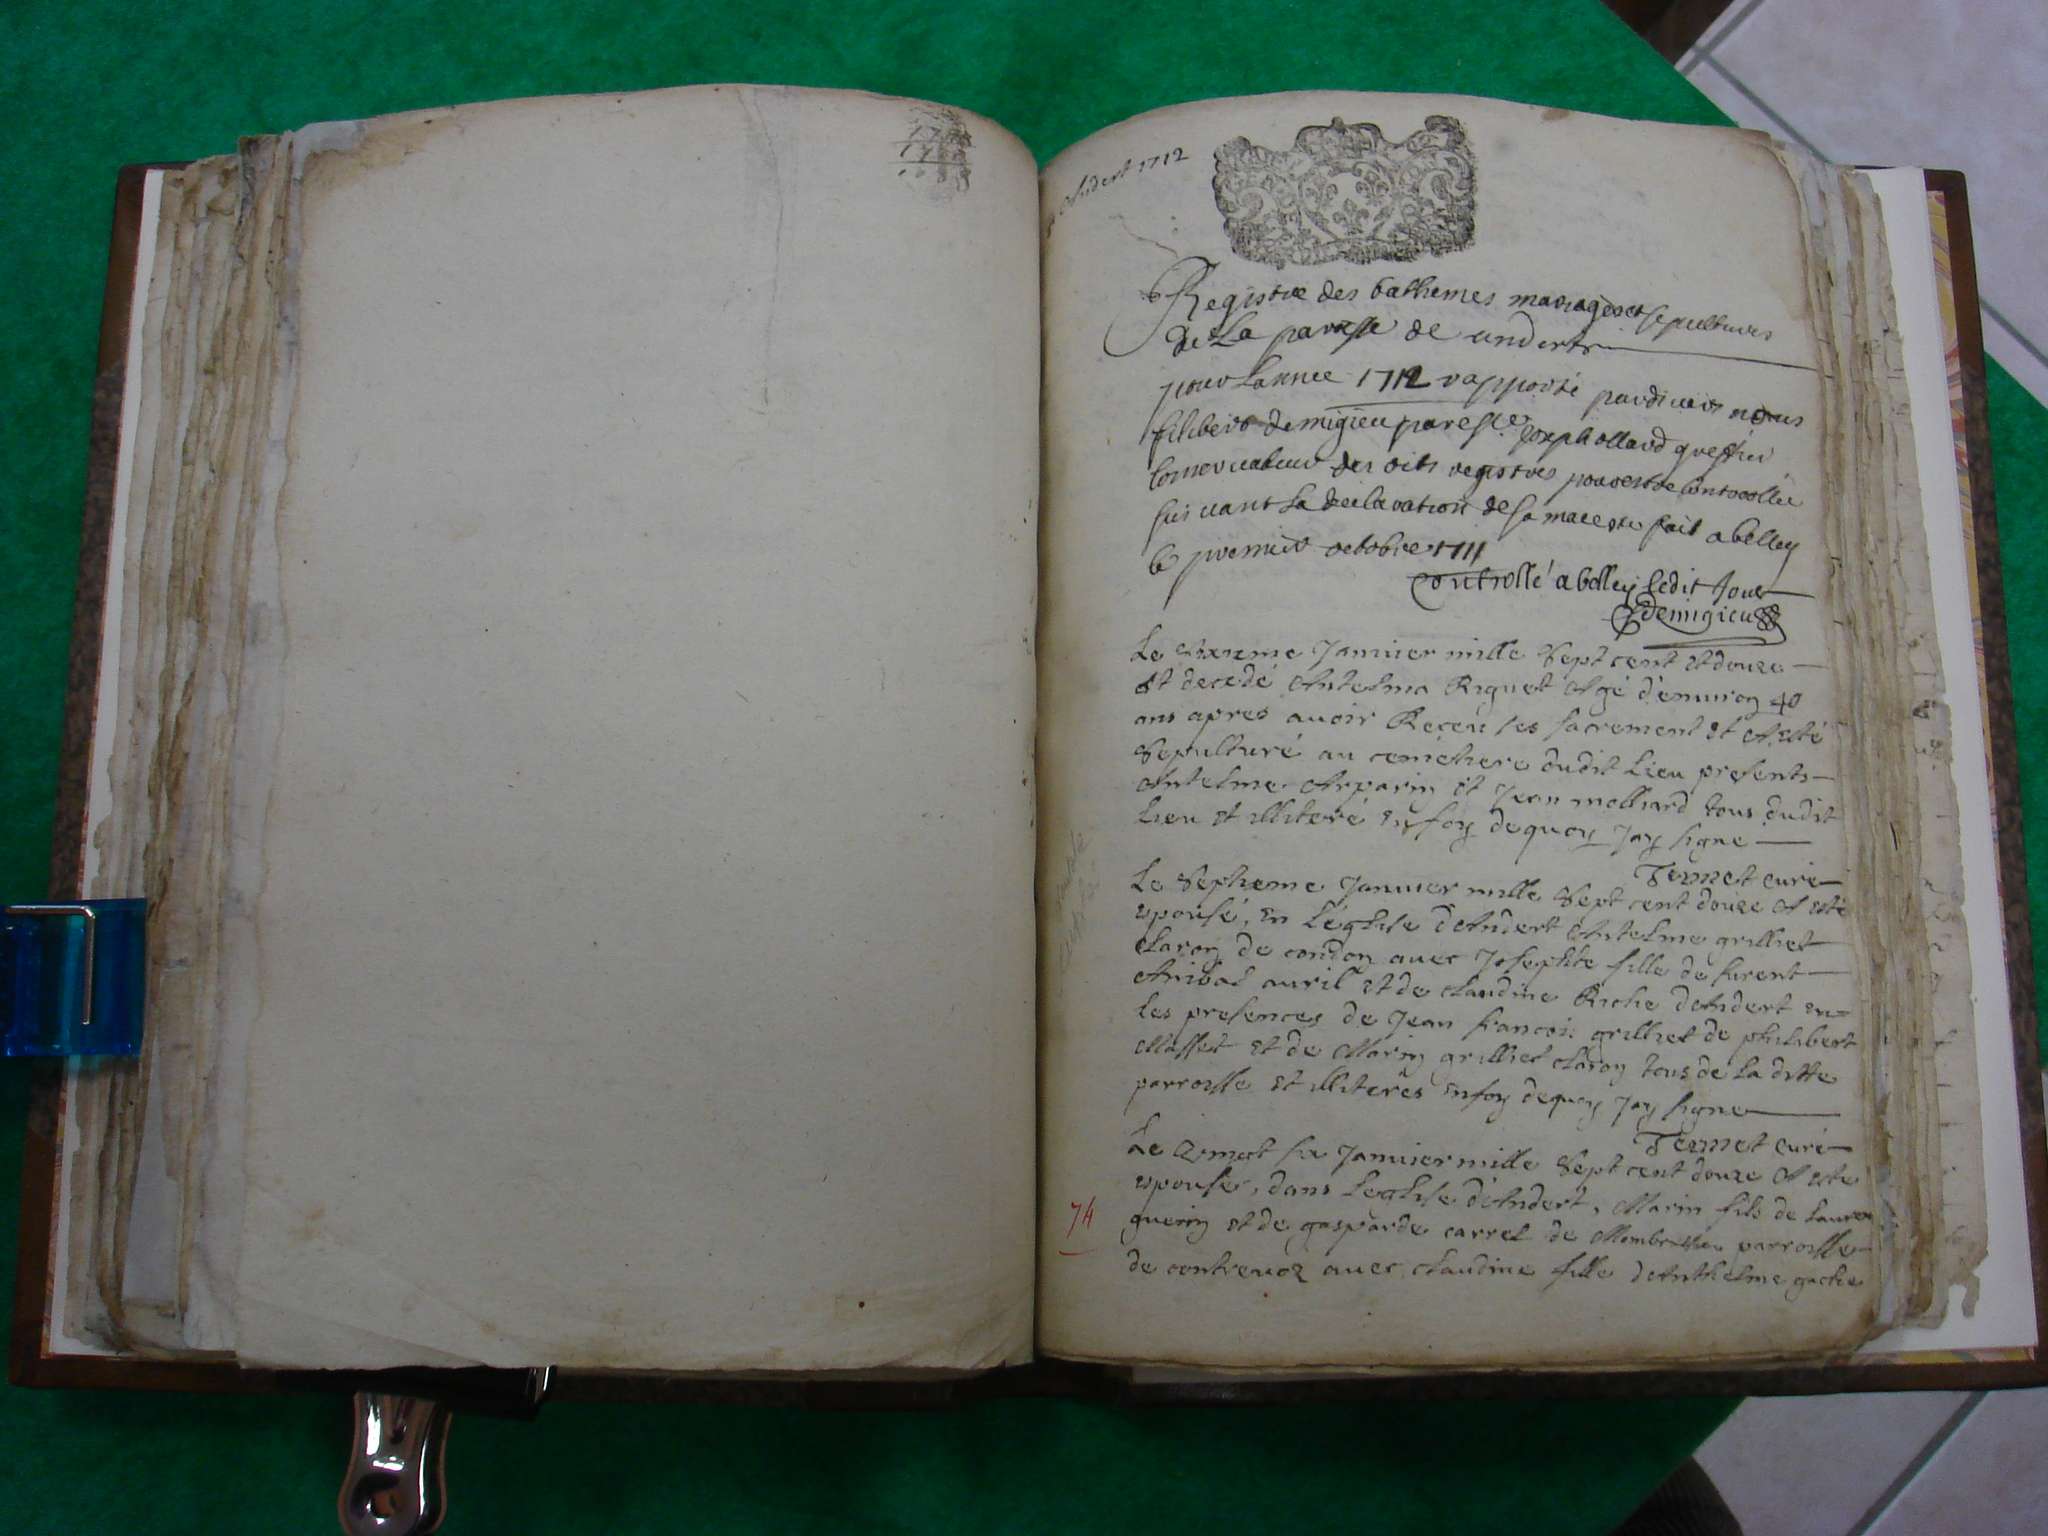 Andert 1712
Registre des bathemes mariages et sepultures
de La paroisse de andert
pour Lannee 1712 rapporté pardevers nous
filibers demigieu par Joseph ollard greffier
Conservateur des dits registres pour estre Controollée
suivant La declaration de sa maceste fait a belley
le premier octobre 1711
Controllé a belley ledit Jour
demigieu
Le Sixieme Januier mille Sept cent et douze
est decedé Antelme Riguet Agé d'enuiron 40
ans apres auoir Receu ses sacrement et A esté
Sepulturé au cemethere dudit Lieu presents
Antelme Arparin et Jean molliard tous dudit
Lieu et illiteré en foy dequoy Jay signe
Termet curé
Le Septieme Januier mille Sept cent douze A esté
epousé, en L'eglise d'Andert Antelme grilliet
Claron de condon auec Josephte fille de furent
Anibal auril et de Claudine Riche d'Andert en
les presences de Jean francois grilliet de philibert
Masset et de Marin grilliet Claron tous de La ditte
parroisse et illiterés en foy dequoy Jay signe
Termet curé
Le vint six Januier mille Sept cent douze A este
epouse, dans Leglise d'Andert, Marin fils de Laurent
guerin et de gasparde carrel de parroisse
de contreuoz auec Claudine fille d'Anthelme gache
74